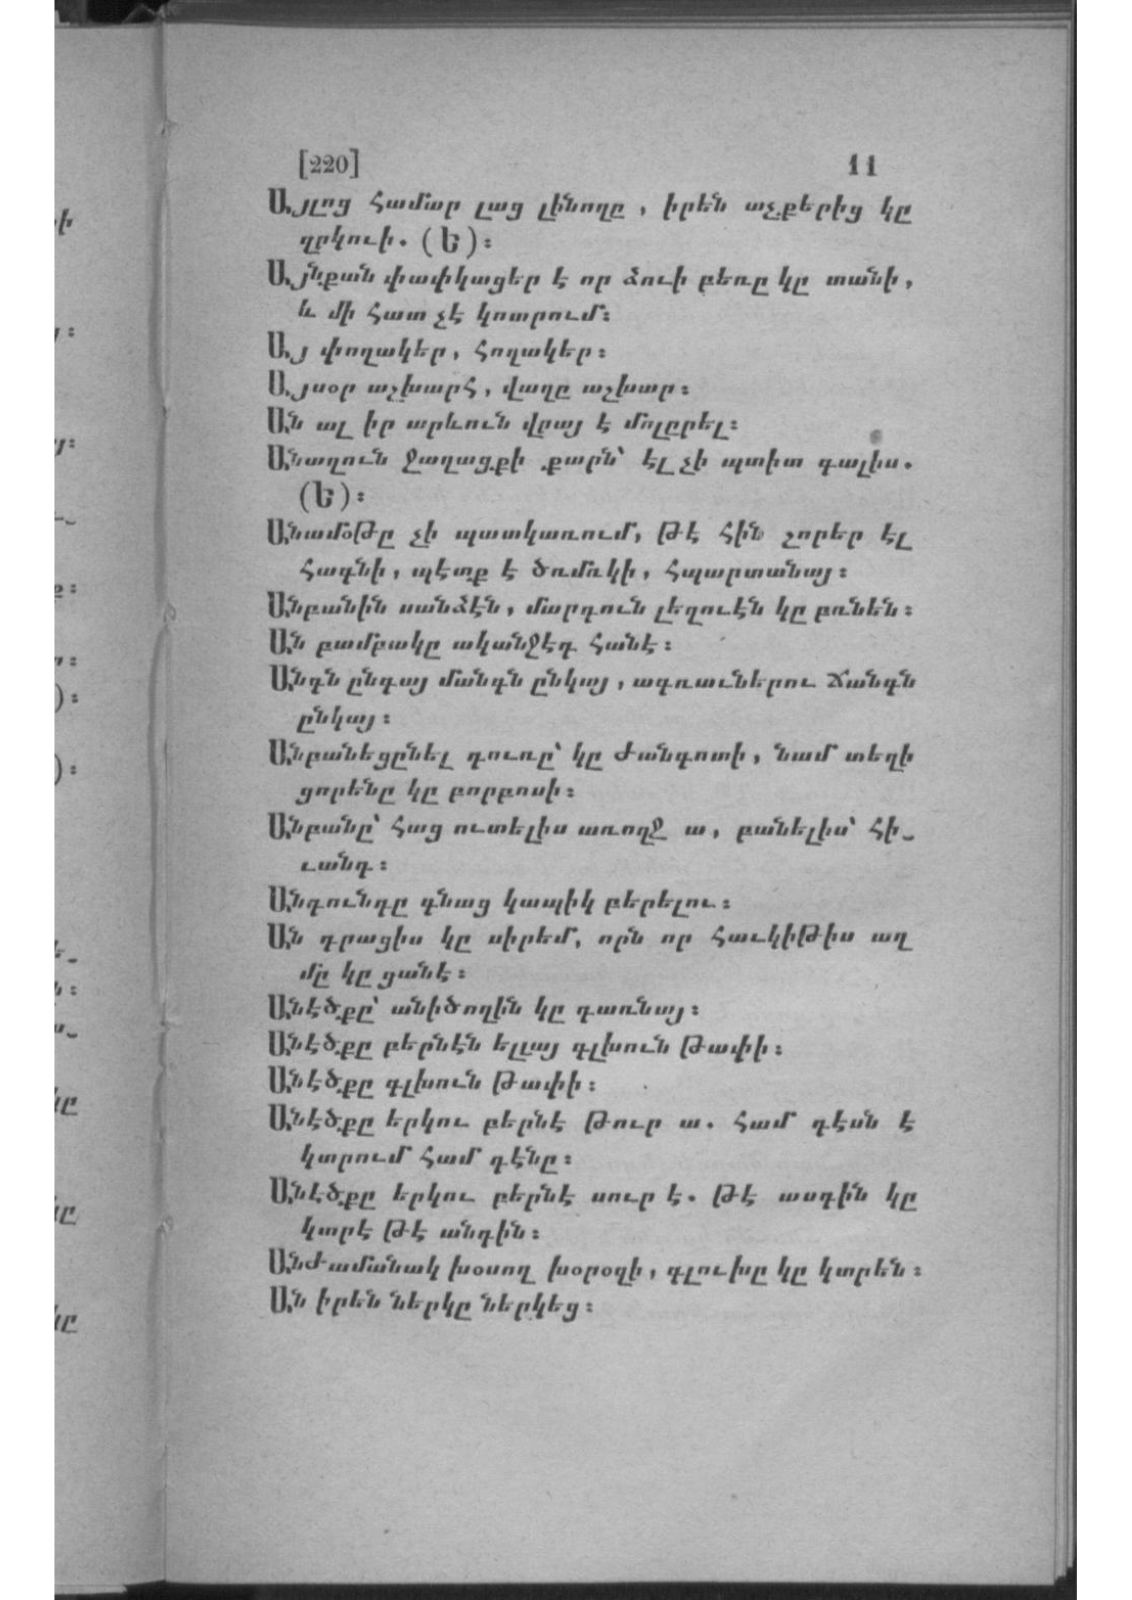 [220] 11
Այլոց համար լաց լինողը, իրեն աչքերից կը
զրկուի. (Ե)։
Այնքան փափկացեր է որ ձուի բեռը կը տանի,
և մի հատ չէ կոտրում։
Այ փողակեր, հողակեր։
Այսօր աշխարհ, վաղը աշխար։
Ան ալ իր արևուն վրայ է մոլըրել։
Անաղուն ջաղացքի քարն՝ էլ չի պտիտ գալիս.
(Ե)։
Անամօթը չի պատկառում, թէ հին շորեր էլ
հագնի, պէտք է ծռմռկի, հպարտանայ։
Անբանին սանձէն, մարդուն լեղուէն կը բռնեն։
Ան բամբակը ականջէդ հանէ։
Անգն ընգայ մանգն ընկայ, ագռաւներու ճանգն
ընկայ։
Անբանեցընել դուռը՝ կը ժանգոտի, նամ տեղի
ցորենը կը բորբոսի։
Անբանը՝ հաց ուտելիս առողջ ա, բանելիս՝ հի-
ւանդ։
Անգունդը գնաց կապիկ բերելու։
Ան գրացիս կը սիրեմ, որն որ հաւկիթիս աղ
մը կը ցանէ։
Անէծքը՝ անիծողին կը դառնայ։
Անէծքը բերնէն ելլայ գլխուն թափի։
Անէծքը գլխուն թափի։
Անէծքը երկու բերնէ թուր ա. համ դէսն է
կտրում համ դէնը։
Անէծքը երկու բերնէ սուր է. թէ ասդին կը
կտրէ թէ անդին։
Անժամանակ խօսող խօրօզի, գլուխը կը կտրեն։
Ան իրեն ներկը ներկեց։